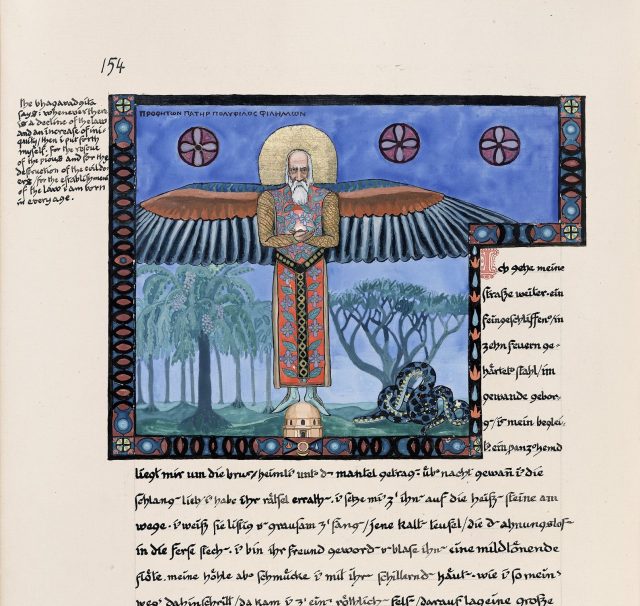 154
the bhagavadgita
says: whenever there
is a decline of the law
and an increase of ini-
quity/then i put forth
myself. for the rescue
of the pious and for the
destruction of the evildo-
ers/for the establishment
of the law i am born
in every age.
ΠΡΟΦΗΤΩΝ ΠΑΤΗΡ ΠΟΛΥΦΙΛΟΣ ΦΙΛΗΜΩΝ
Ich gehe meine
straße weiter. ein
feingeschliffen'/in
zehn feuern ge-
härtet' stahl/im
gewande gebor-
g'/i' mein beglei-
t'. ein panz'hemd
liegt mir um die brus'/heimli' unt' d' mantel getrag'. üb' nacht gewañ i' die
schlang' lieb i' habe ihr räthsel errath'. i' setze mi' z' ihn' auf die heiß' steine am
wege. i' weiß sie listig u' grausam z' fang'/jene kalt' teufel/die d' ahnungslos'
in die ferse stech'. i' bin ihr freund geword' u' blase ihn' eine mildtönende
flöte. meine höhle ab' schmücke i' mit ihr' schillernd' häut'. wie i' so mein'
wegs dahinschritt/da kam i' z' ein' röthlich' fels/darauf lag eine große